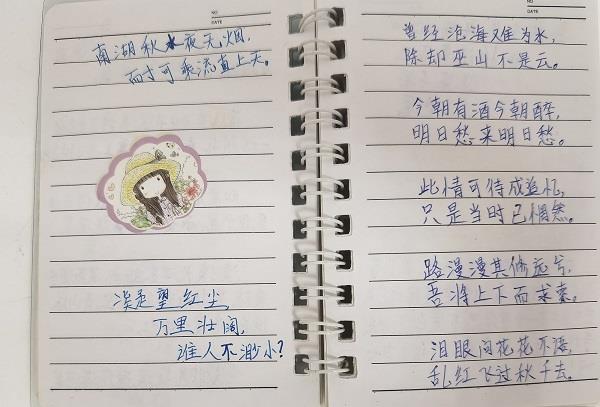 NO
DATE
南湖秋水夜无烟,
耐可乘流直上天。
望红尘,
万里壮阔,
谁人不渺小?
NO
DATE
曾经沧海难为水,
除却巫山不是云。
今朝有酒今朝醉,
明日愁来明日愁。
此情可待成追忆,
只是当时已惘然。
路漫漫其修远兮,
吾将上下而求索。
泪眼问花花不语,
乱红飞过秋千去。